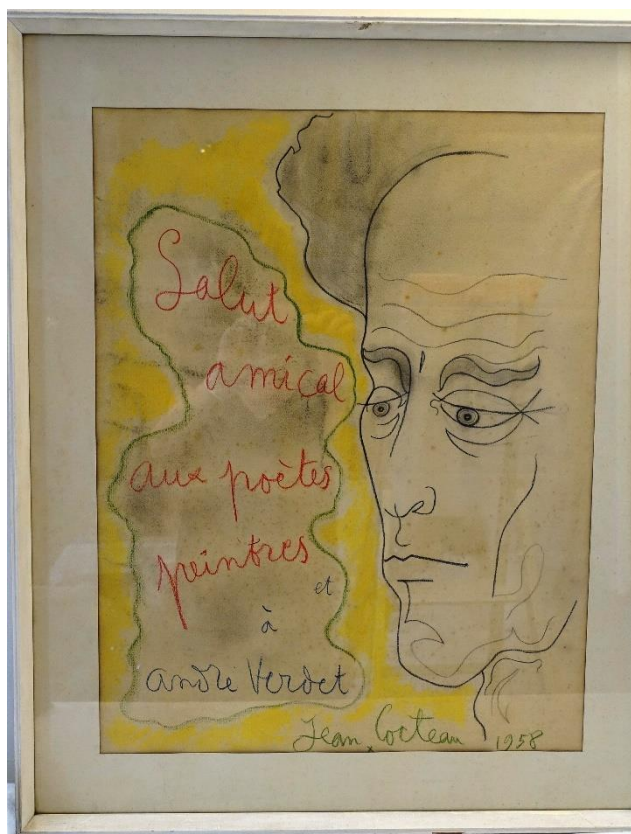 Salut
amical
aux poètes
peintres
et
à
andré Verdet
Jean Cocteau 1958